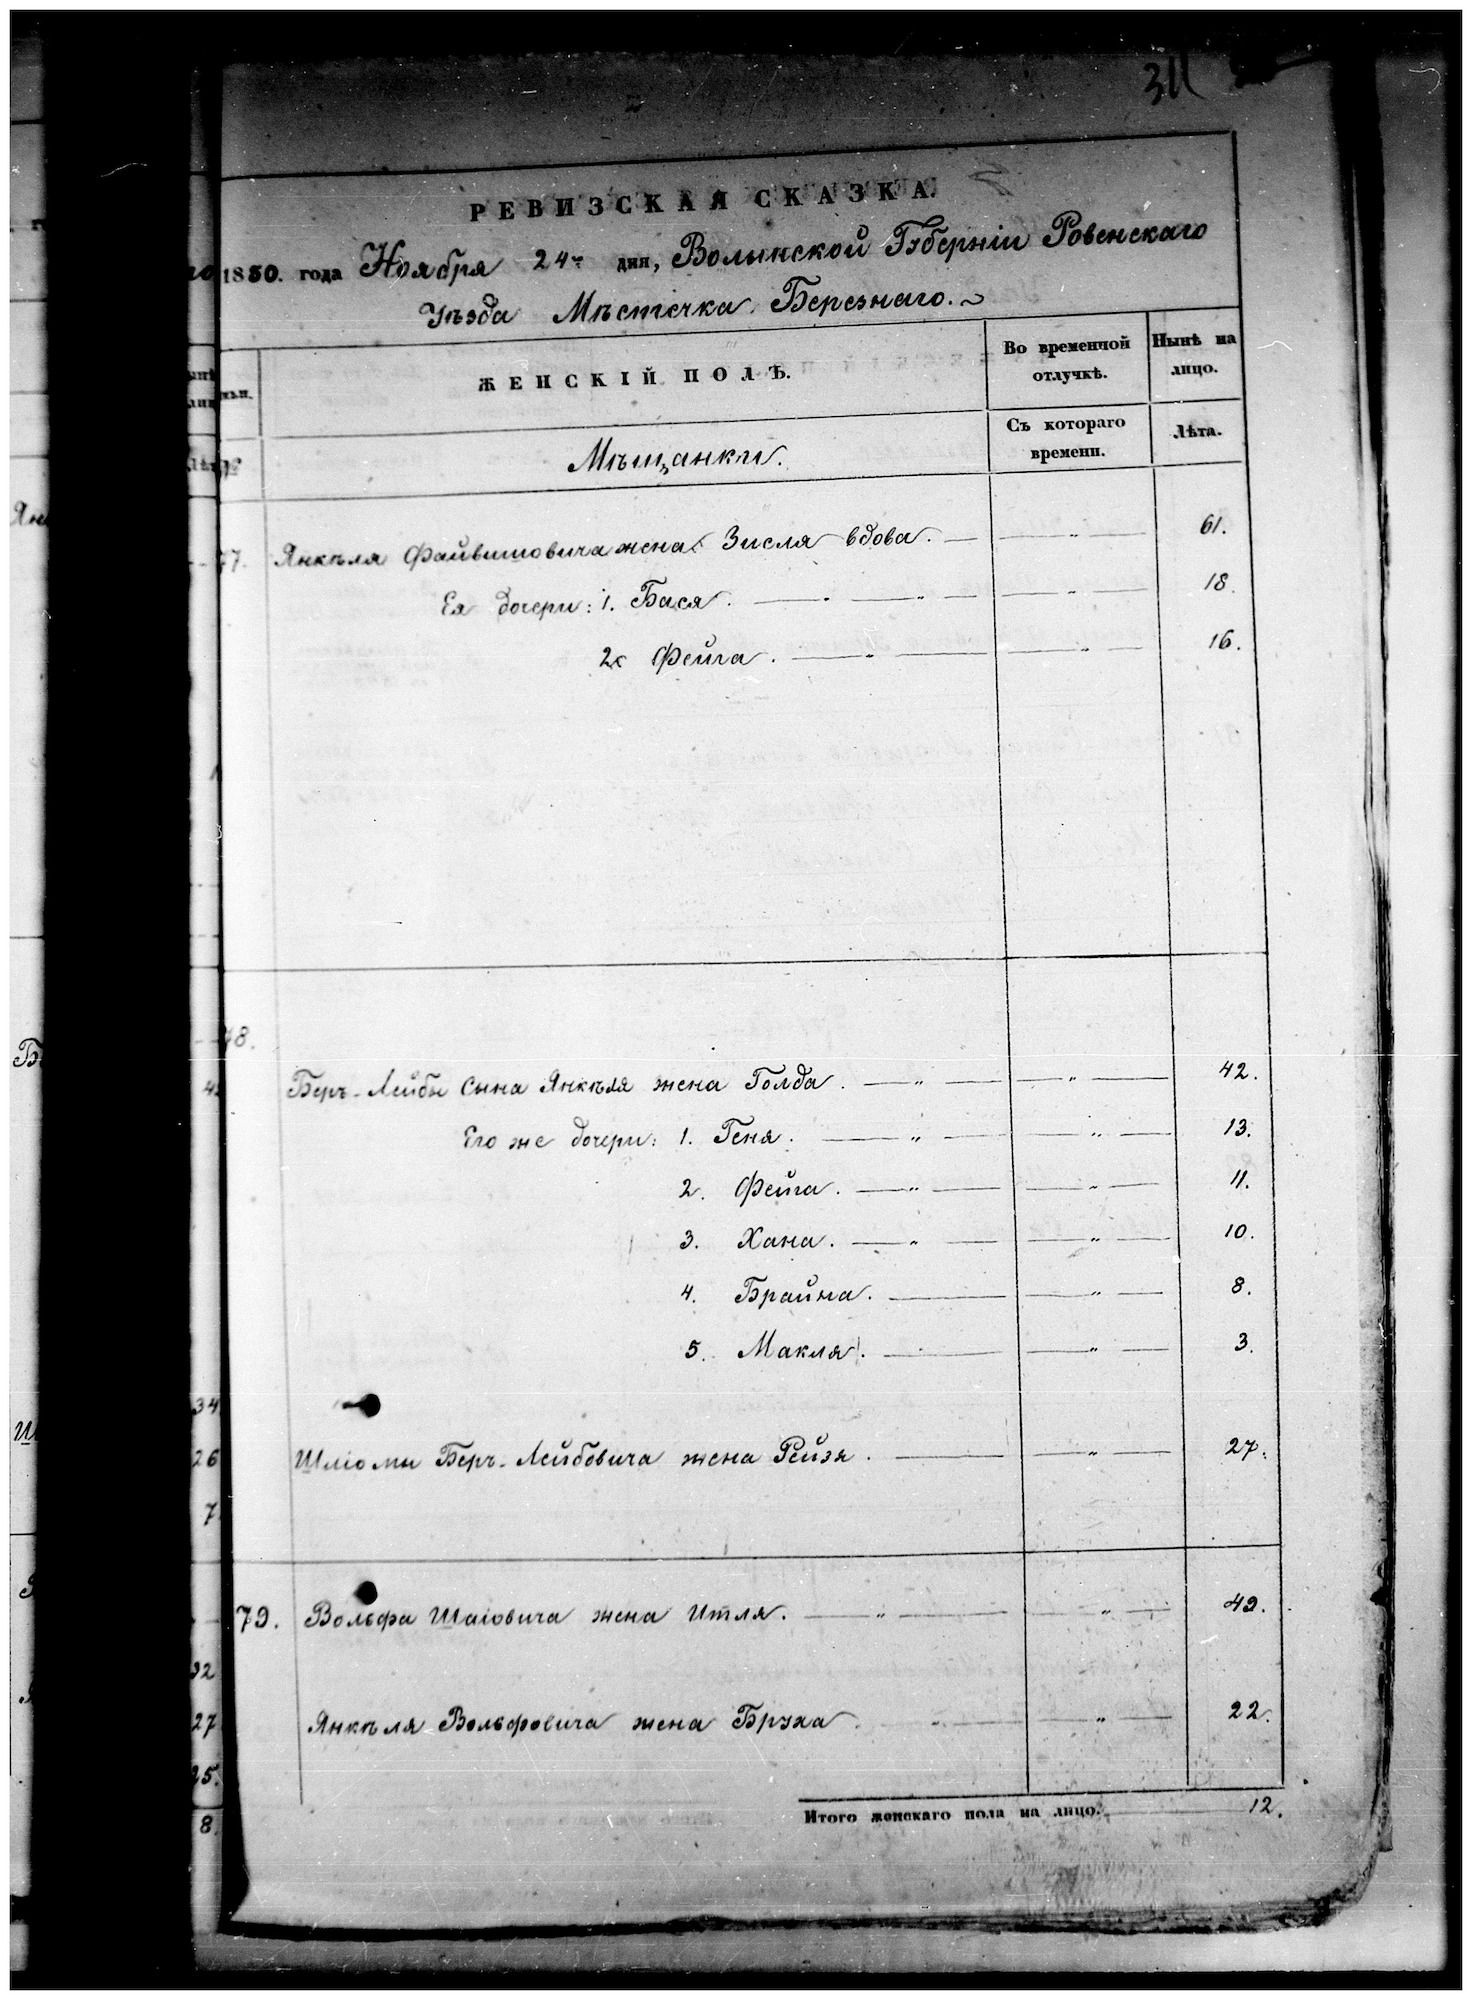 311
РЕВИЗСКАЯ СКАЗКА.
1850. года Ноября 24го дня, Волынской Губерніи Ровенскаго
Уѣзда Мѣстечка Березнаго.
ЖЕНСКІЙ ПОЛЪ.
Во временной отлучкѣ.
Нынѣ на лицо.
Мѣщанки.
Съ котораго времени.
Лѣта.
77. Янкеля Файвишовича жена Зисля вдова. — " — 61.
Ея дочери: 1. Бася. — " — " — 18.
2. Фейга. — " — " — 16.
78.
Беръ-Лейбы сына Янкеля жена Голда. — " — " — 42.
Его же дочери: 1. Геня. — " — " — 13.
2. Фейга. — " — " — 11.
3. Хана. — " — " — 10.
4. Брайна. — " — 8.
5. Макля. — " — 3.
Шліомы Беръ-Лейбовича жена Рейзя. — " — 27.
79. Вольфа Шаіовича жена Итля. — " — " — 49.
Янкеля Вольфовича жена Бруха. — " — 22.
Итого женскаго пола на лицо. 12.